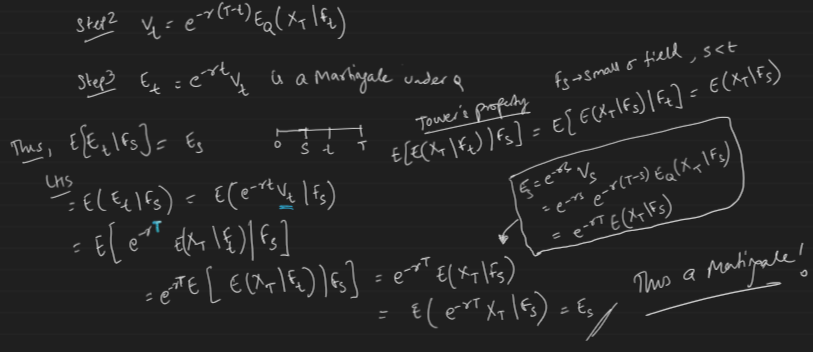 Step2 V_t = e^{-r(T-t)} E_Q(X_T|f_t)
Step3 E_t = e^{-rt} V_t is a Martingale under Q
f_s → small σ field, s<t
Tower's property
E[E(X_T|f_t)|f_s] = E[E(X_T|f_s)|f_t] = E(X_T|f_s)
Thus, E[E_t|f_s] = E_s
0 s t T
LHS
= E(E_t|f_s) = E(e^{-rt} V_t|f_s)
= E[e^{-rT} E(X_T|f_t)|f_s]
= e^{-rT} E[E(X_T|f_t)|f_s] = e^{-rT} E(X_T|f_s)
= E(e^{-rT} X_T|f_s) = E_s
E_s = e^{-rs} V_s
= e^{-rs} e^{-r(T-s)} E_Q(X_T|f_s)
= e^{-rT} E(X_T|f_s)
Thus a Martingale!